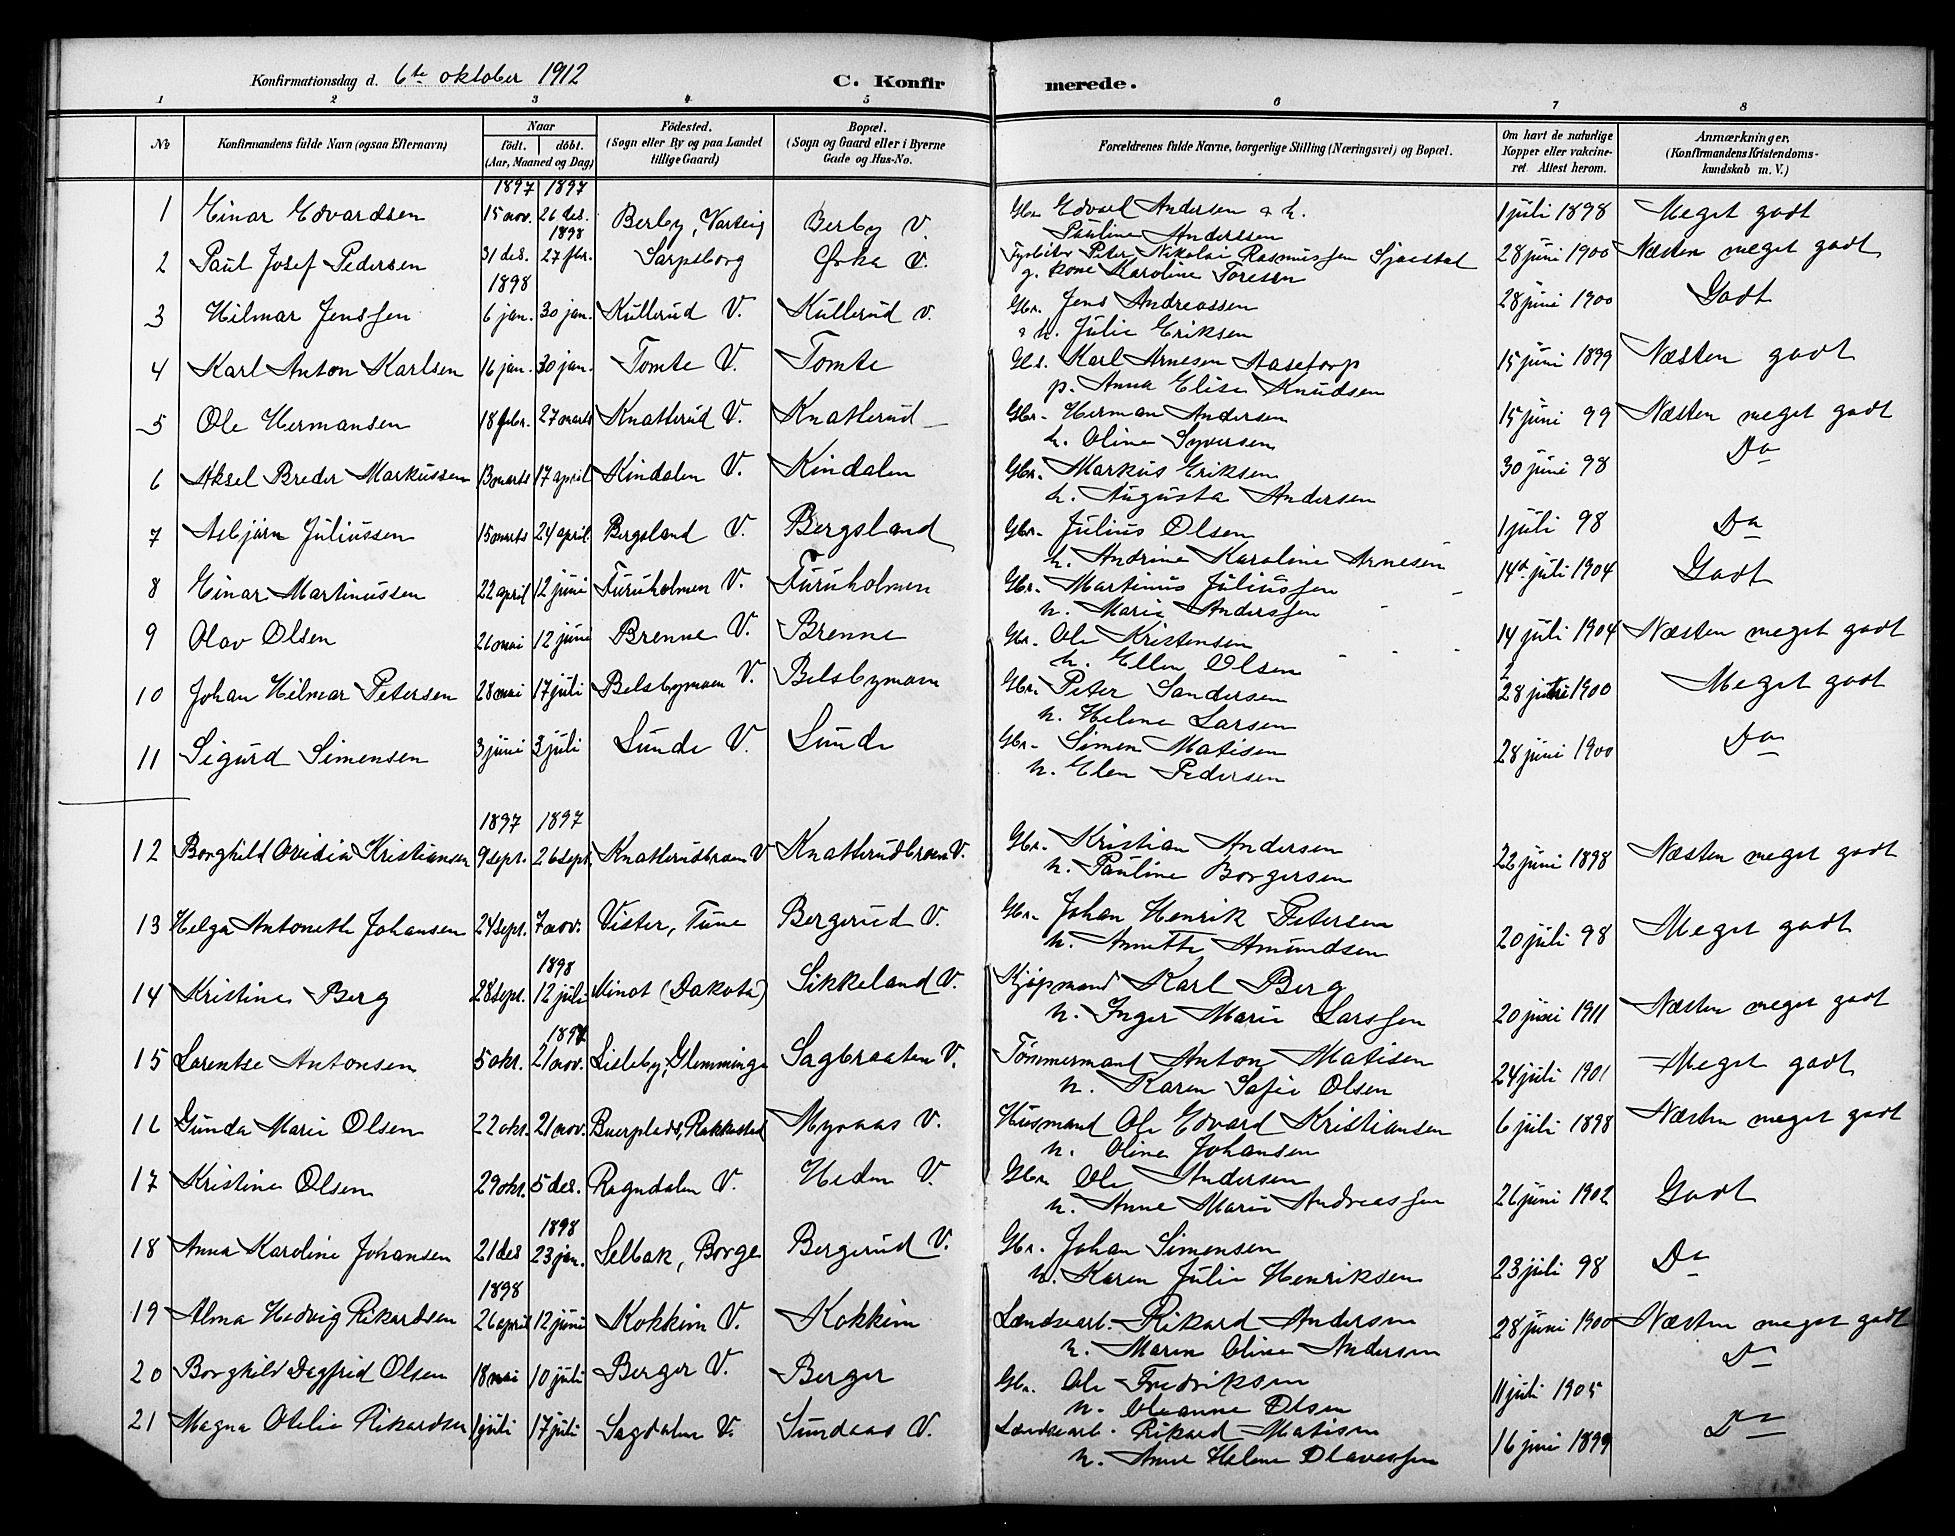 Konfirmationsdag d. 6te oktober 1912 C. Konfirmerede.
1 2 3 4 5 6 7 8
No Konfirmandens fulde Navn (ogsaa Efternavn) Naar födt. döbt. (Aar, Maaned og Dag) Födested. (Sogn eller By og paa Landet tillige Gaard) Bopæl. (Sogn og Gaard eller i Byerne Gade og Hus-No. Forældrenes fulde Navne, borgerlige Stilling (Næringsvei) og Bopæl. Om havt de naturlige Kopper eller vakcineret. Attest herom. Anmærkninger, (Konfirmandens Kristendomskundskab m. V.)
1897 1897
1 Einar Edvardsen 15 nov. 26 des. Berby, Varteig Berby V. Gbr. Edvard Andersen & h. 1 juli 1898 Meget godt
Pauline Andersen
1898
2 Paul Josef Pedersen 31 des. 27 fbr. Sarpsborg V. Peter Nikolai Rasmussen 28 juni 1900 Næsten meget godt
g. kone Karoline Toresen
1898
3 Hilmar Jenssen 6 jan. 30 jan. Kullerud V. Kullerud V. Gbr. Jens Andreassen 28 juni 1900 Godt
& h. Julie Eriksen
4 Karl Anton Karlsen 16 jan. 30 jan. Tomte V. Tomte Karl Arnesen Aasetorp 15 juni 1899 Næsten godt
p. Anna Elise Knudsen
5 Ole Hermansen 18 febr. 27 marts Knatterud V. Knatterud Gbr. Herman Andersen 15 juni 99 Næsten meget godt
h. Oline Syversen
6 Aksel Breder Markussen 13 marts 17 april Kindalen V. Kindalen Gbr. Markus Eriksen 30 juni 98 Do
h. Augusta Andersen
7 Asbjörn Juliussen 15 marts 24 april Bergsland V. Bergsland Gbr. Julius Olsen 1 juli 98 Do
h. Andrine Karoline Arnesen
8 Einar Martinussen 22 april 12 juni Furuholmen V. Furuholmen Gbr. Martinus Juliussen 14d juli 1904 Godt
h. Marie Anderssen
9 Olav Olsen 12 juni Brenne V. Brenne Gbr. Ole Kristensen 14 juli 1904 Næsten meget godt
h. Ellen Olsen
10 Johan Hilmar Petersen 28 mai 17 juli Belsbymoen V. Belsbymoen Gbr. Peter Sandersen 28 1900 Meget godt
h. Helene Larsen
11 Sigurd Simensen 3 juni 3 juli Sunde V. Sunde Gbr. Simen Matisen 28 juni 1900 Do
h. Elen Pedersen
1897 1897
12 Borghild Ovidia Kristiansen 9 sept. 26 sept. Knatterudbraaen V Knatterudbraaen V. Gbr. Kristian Andersen 22 juni 1898 Næsten meget godt
h. Pauline Borgersen
13 Helga Antoneth Johansen 24 sept. 7 nov. Vister, Tune Bergerud V. Gbr. Johan Henrik Petersen 20 juli 98 Meget godt
h. Anette Amundsen
1898
14 Kristine Berg 28 sept. 12 juli Minot (Dakota) Sikkeland V. Kjöpmand Karl Berg 20 juni 1911 Næsten meget godt
h. Inger Marie Larssen
1897
15 Lorentse Antonsen 5 okt. 21 nov. Lisleby, Glemminge Sagbraaten V. Tömmermand Anton Matisen 24 juli 1901 Meget godt
h. Karen Sofie Olsen
16 Gunda Marie Olsen 22 okt. 21 nov. Buerplads, Rakkestad Myraas V. Husmand Ole Edvard Kristiansen 6 juli 1898 Næsten meget godt
h. Oline Johansen
17 Kristine Olsen 29 okt. 5 des. Rogndalen V. Heden V. Gbr Ole Andersen 26 juni 1902 Godt
h. Anne Marie Andreassen
1898
18 Anna Karoline Johansen 21 des 23 jan. Selbak, Borge Bergerud V. Gbr. Johan Simensen 23 juli 98 Do
h. Karen Julie Henriksen
1898
19 Alma Hedvig Rikardsen 26 april 12 juni Kokkim V. Kokkim Landsearb. Rikard Andersen 28 juni 1900 Næsten meget godt
h. Maren Oline Andersen
20 Borghild Degfrid Olsen 18 mai 10 juli Berger V. Berger Gbr. Ole Fredriksen 11 juli 1905 Do
h. Oleanne Olsen
21 Magna Otelie Rikardsen 1 juli 17 juli Sagdalen V. Sundaas V. Landsearb. Rikard Matisen 16 juni 1899 Do
h. Anne Helene Olavessen